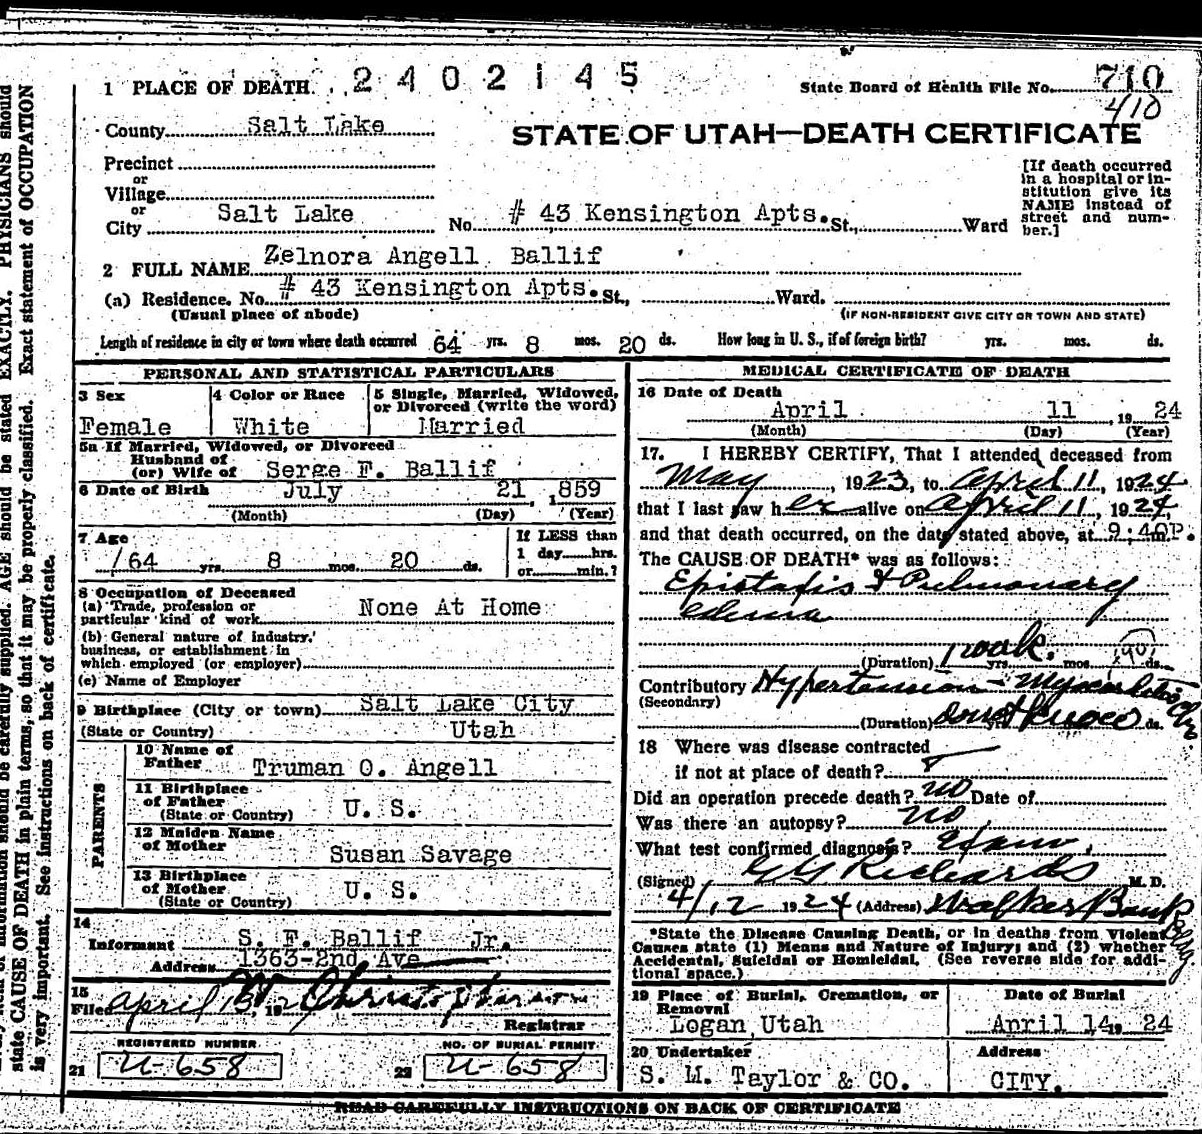 1 PLACE OF DEATH. 2402145 State Board of Health File No. 710
410
County Salt Lake
STATE OF UTAH—DEATH CERTIFICATE
Precinct
or
Village
or
City Salt Lake No. # 43 Kensington Apts. St., Ward
[If death occurred
in a hospital or in-
stitution give its
NAME instead of
street and num-
ber.]
2 FULL NAME Zelnora Angell Ballif
(a) Residence. No. # 43 Kensington Apts. St., Ward.
(Usual place of abode) (IF NON-RESIDENT GIVE CITY OR TOWN AND STATE)
Length of residence in city or town where death occurred 64 yrs. 8 mos. 20 ds. How long in U. S., if of foreign birth? yrs. mos. ds.
PERSONAL AND STATISTICAL PARTICULARS
3 Sex 4 Color or Race 5 Single, Married, Widowed,
or Divorced (write the word)
Female White Married
5a If Married, Widowed, or Divorced
Husband of
(or) Wife of Serge F. Ballif
6 Date of Birth July 21 ,1859
(Month) (Day) (Year)
7 Age If LESS than
1 day hrs.
/64 yrs. 8 mos. 20 ds. or min.?
8 Occupation of Deceased
(a) Trade, profession or
particular kind of work None At Home
(b) General nature of industry,
business, or establishment in
which employed (or employer)
(c) Name of Employer
9 Birthplace (City or town) Salt Lake City
(State or Country) Utah
PARENTS
10 Name of
Father Truman O. Angell
11 Birthplace
of Father U. S.
(State or Country)
12 Maiden Name
of Mother Susan Savage
13 Birthplace
of Mother U. S.
(State or Country)
14
Informant S. F. Ballif Jr.
Address 1363-2nd Ave
15
Filed April
Registrar
REGISTERED NUMBER NO. OF BURIAL PERMIT
21 U-658 22 U-658
MEDICAL CERTIFICATE OF DEATH
16 Date of Death
April 11 , 19 24
(Month) (Day) (Year)
17. I HEREBY CERTIFY, That I attended deceased from
May , 1923, to April 11, 1924
that I last saw her alive on April 11, 1924
and that death occurred, on the date stated above, at 9:40P.m.
The CAUSE OF DEATH* was as follows:
Epistaxis & Pulmonary
edema
(Duration) 1 week. yrs. mos. ds.
Contributory Hypertension - Myocarditis
(Secondary)
(Duration) ds.
18 Where was disease contracted
if not at place of death?
Did an operation precede death? no Date of
Was there an autopsy? no
What test confirmed diagnosis? Exam.
(Signed) GG Richards M. D.
4/12 1924 (Address) Walker Bank Bldg
*State the Disease Causing Death, or in deaths from Violent
Causes state (1) Means and Nature of Injury; and (2) whether
Accidental, Suicidal or Homicidal. (See reverse side for addi-
tional space.)
19 Place of Burial, Cremation, or Date of Burial
Removal
Logan Utah April 14 19 24
20 Undertaker Address
S. M. Taylor & CO. CITY.
READ CAREFULLY INSTRUCTIONS ON BACK OF CERTIFICATE
information should be carefully supplied. AGE should be stated EXACTLY. PHYSICIANS should
state CAUSE OF DEATH in plain terms, so that it may be properly classified. Exact statement of OCCUPATION
is very important. See instructions on back of certificate.